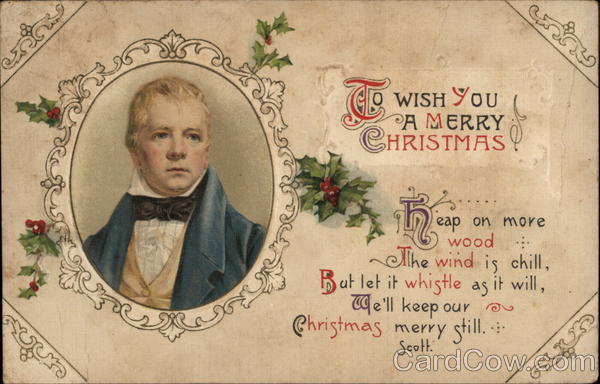 To Wish You
A Merry
Christmas
Heap on more
wood
The wind is chill,
But let it whistle as it will,
We'll keep our
Christmas merry still.
Scott.
CardCow.com